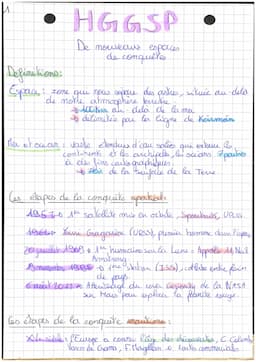 1
HGGSP
De nouveaux espaces
de conquête
Définitions:
Espace : zone que nous sépare des astres, située au-delà
de notre atmosphère terrestre
au delà de la mer
délimitée par la ligne de Karman
Mer et océan : vaste étendues d'eau salées qui entourent les
continents et les archipels, les océans
à des fins cartographiques.
de la surface de la Terre
Les étapes de la conquête spatiale:
1957 → 1er satellite mis en orbite, Spoutnik, URSS
Gagarine (URSS), premier homme dans l'espace
1969 → 1er humain sur la Lune : Apollo 11 Neil
Armstrong
1er station (ISS), collab entre plein
de pays
Atterrissage du rover de la NASA
sur Mars pour explorer la planète rouge
Les étapes de la conquête maritime:
l'Europe a connu l'âge des découvertes, C. Colomb,
Vasco de Gama, F. Magellan